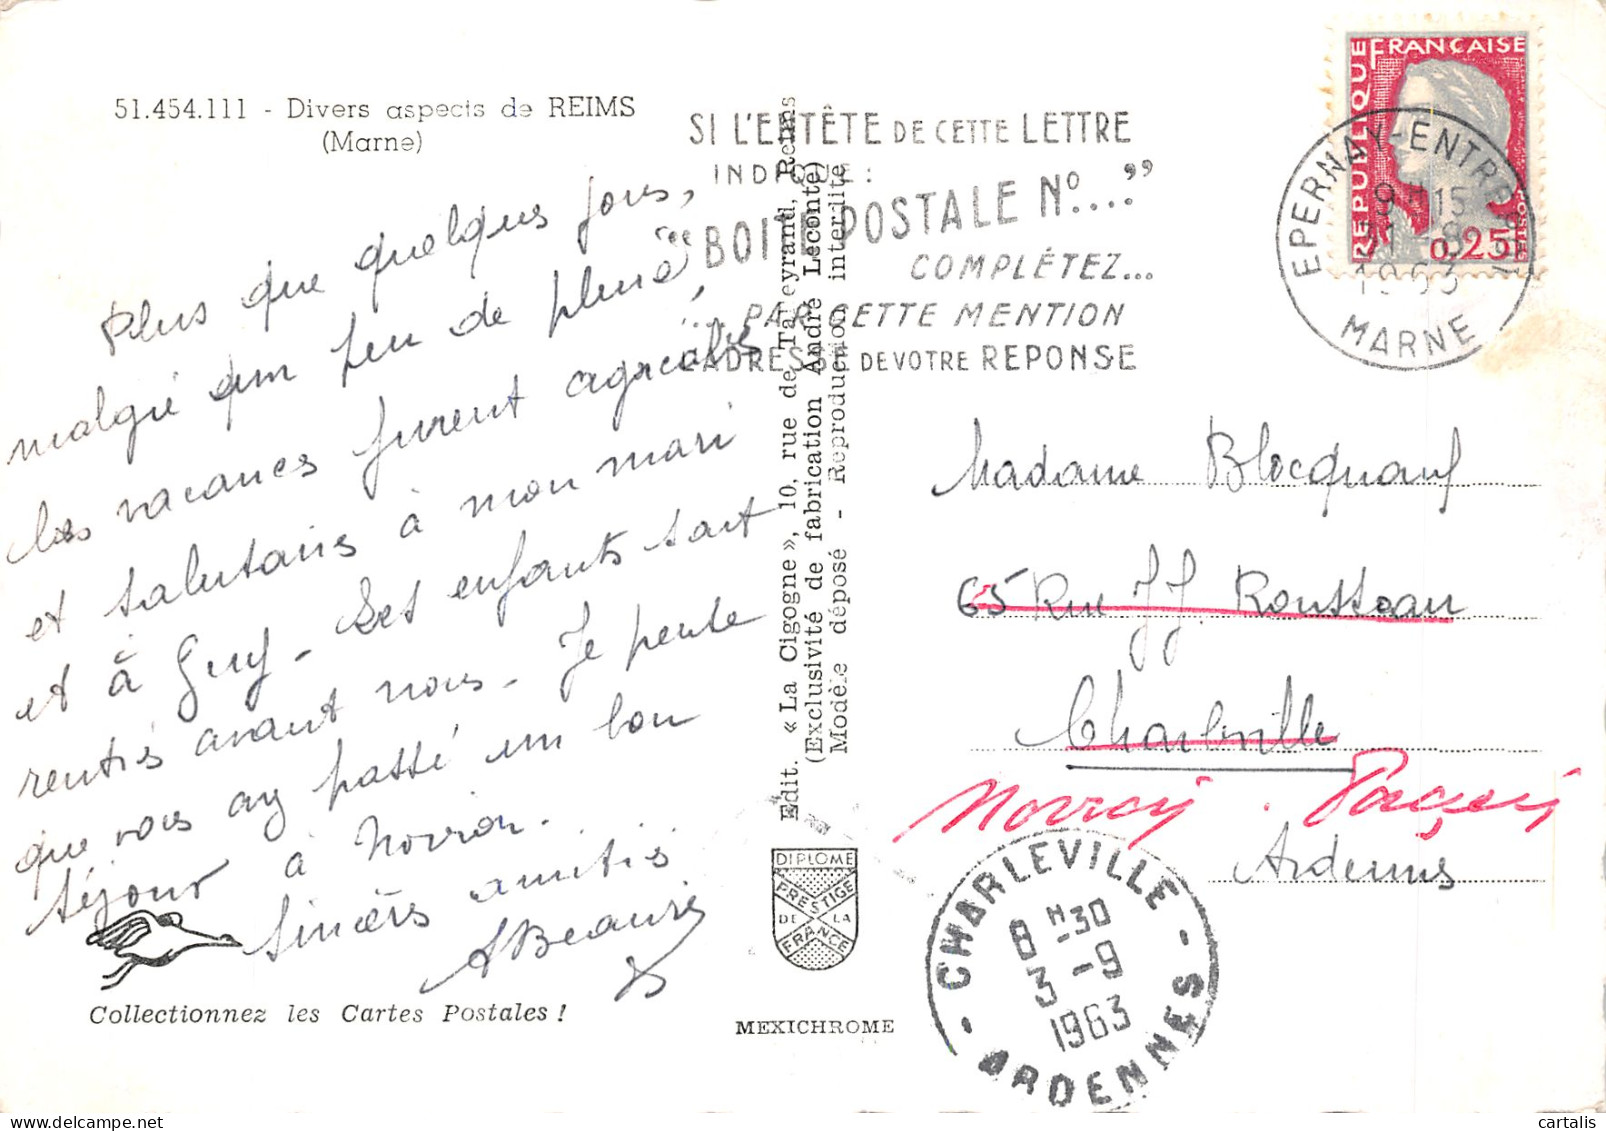 51.454.111 - Divers aspects de REIMS
(Marne)
Plus que quelques jours,
malgré un peu de pluie,
les vacances furent agréables
et salutaires à mon mari
et à Guy - Les enfants sont
rentrés avant nous. Je pense
que vous avez passé un bon
séjour à Novion.
Sincères amitiés
ABeauvis
Collectionnez les Cartes Postales !
Edit. « La Cigogne », 10, rue de Talleyrand, Reims
(Exclusivité de fabrication André Leconte)
Modèle déposé - Reproduction interdite
DIPLOME
PRESTIGE
DE LA
FRANCE
MEXICHROME
SI L'ENTÊTE DE CETTE LETTRE
INDIQUE :
"BOITE POSTALE No...."
COMPLÉTEZ...
... PAR CETTE MENTION
L'ADRESSE DE VOTRE REPONSE
REPUBLIQUE FRANÇAISE
0,25
EPERNAY-ENTREPOT
9H15
31-8
1963
MARNE
Madame Blocquaux
65 Rue J.J. Rousseau
Charleville
Novion . Porcien
Ardennes
CHARLEVILLE
8H30
3-9
1963
ARDENNES
cartalis